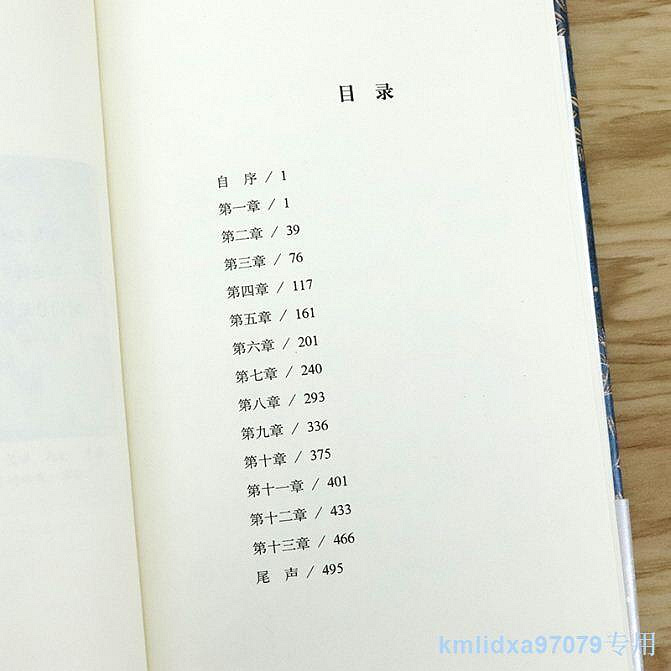 目 录
自 序 / 1
第一章 / 1
第二章 / 39
第三章 / 76
第四章 / 117
第五章 / 161
第六章 / 201
第七章 / 240
第八章 / 293
第九章 / 336
第十章 / 375
第十一章 / 401
第十二章 / 433
第十三章 / 466
尾 声 / 495
kmlidxa97079专用